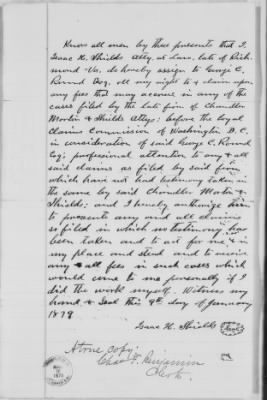 Know all men by these presents that I,
Isaac H. Shields Atty. at Law, late of Rich-
mond Va. do hereby assign to George C.
Round Esq. all my right & claim upon
any fee that may accrue in any of the
cases filed by the late firm of Chandler
Morton & Shields Attys: before the Loyal
Claims Commission of Washington D.C.
in consideration of said George C. Round
Esq's professional attention to any & all
said claims as filed by said firm
which have not had testimony taken in
the same by said Chandler Morton &
Shields: and I hereby authorize him
to prosecute any and all claims
so filed in which no testimony has
been taken and to act for me & in
my place and stead and to receive
any & all fees in such cases which
would come to me personally if I
did the work myself. Witness my
hand & seal this 9th day of January
1878
Isaac H. Shields
A true copy:
Chas. F. Benjamin
Clerk.